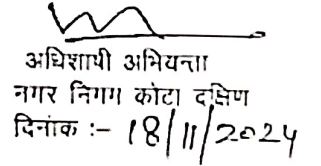 अधिशाषी अभियन्ता
नगर निगग कोटा दक्षिण
दिनांक :- 18/11/2024